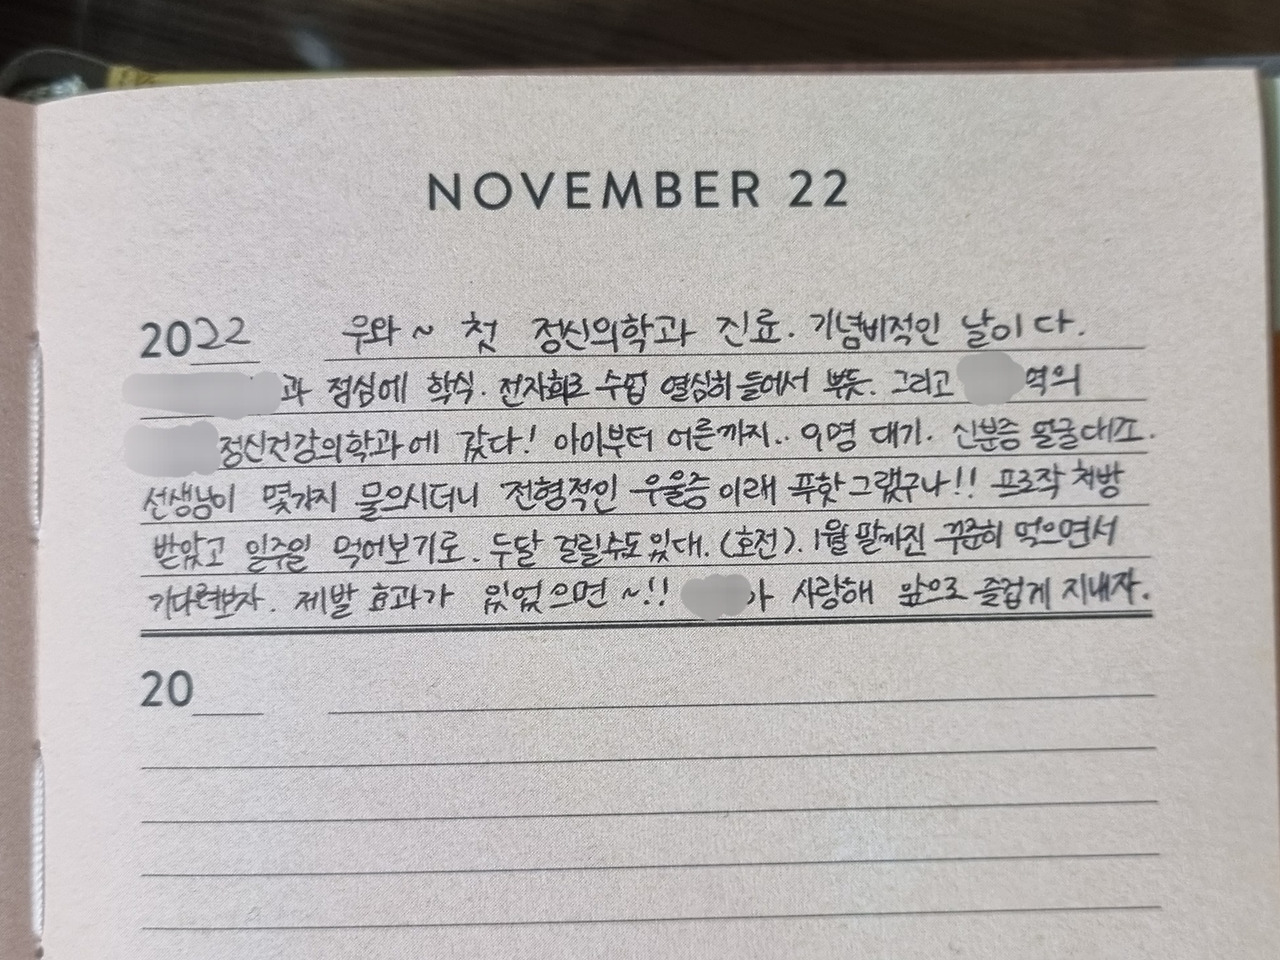 NOVEMBER 22
2022 우와~ 첫 정신의학과 진료. 기념비적인 날이다.
과 점심에 학식. 전자회로 수업 열심히 들어서 뿌듯. 그리고 역의
정신건강의학과에 갔다! 아이부터 어른까지.. 9명 대기. 신분증 얼굴대조.
선생님이 몇가지 물으시더니 전형적인 우울증이래 푸핫 그랬구나!! 프로작 처방
받았고 일주일 먹어보기로. 두달 걸릴수도 있대. (호전). 1월 말까진 꾸준히 먹으면서
기다려보자. 제발 효과가 있었으면~!! 아 사랑해 앞으로 즐겁게 지내자.
20